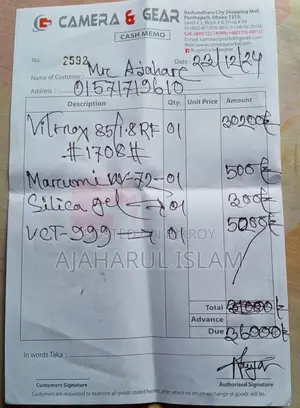 CAMERA & GEAR
Bashundhara City Shopping Mall,
Panthapath, Dhaka-1215.
CASH MEMO
No. 2592
22/12/24
Name of Customer: Mr Ajahare
Address: 01571719610
Description Qty. Unit Price Amount
Viltrox 85/1.8 RF 01 30200/-
#1708#
Marumi UV-72 01 500/-
Silica gel → 01 300/-
VCT-999 → 01 5000/-
AJAHARUL ISLAM
Total
Advance
Due 36000/-
In words Taka :
Customers Signature Authorised Signature
Customers are requested to examine all goods stated herein, after which no return exchange of goods will be.